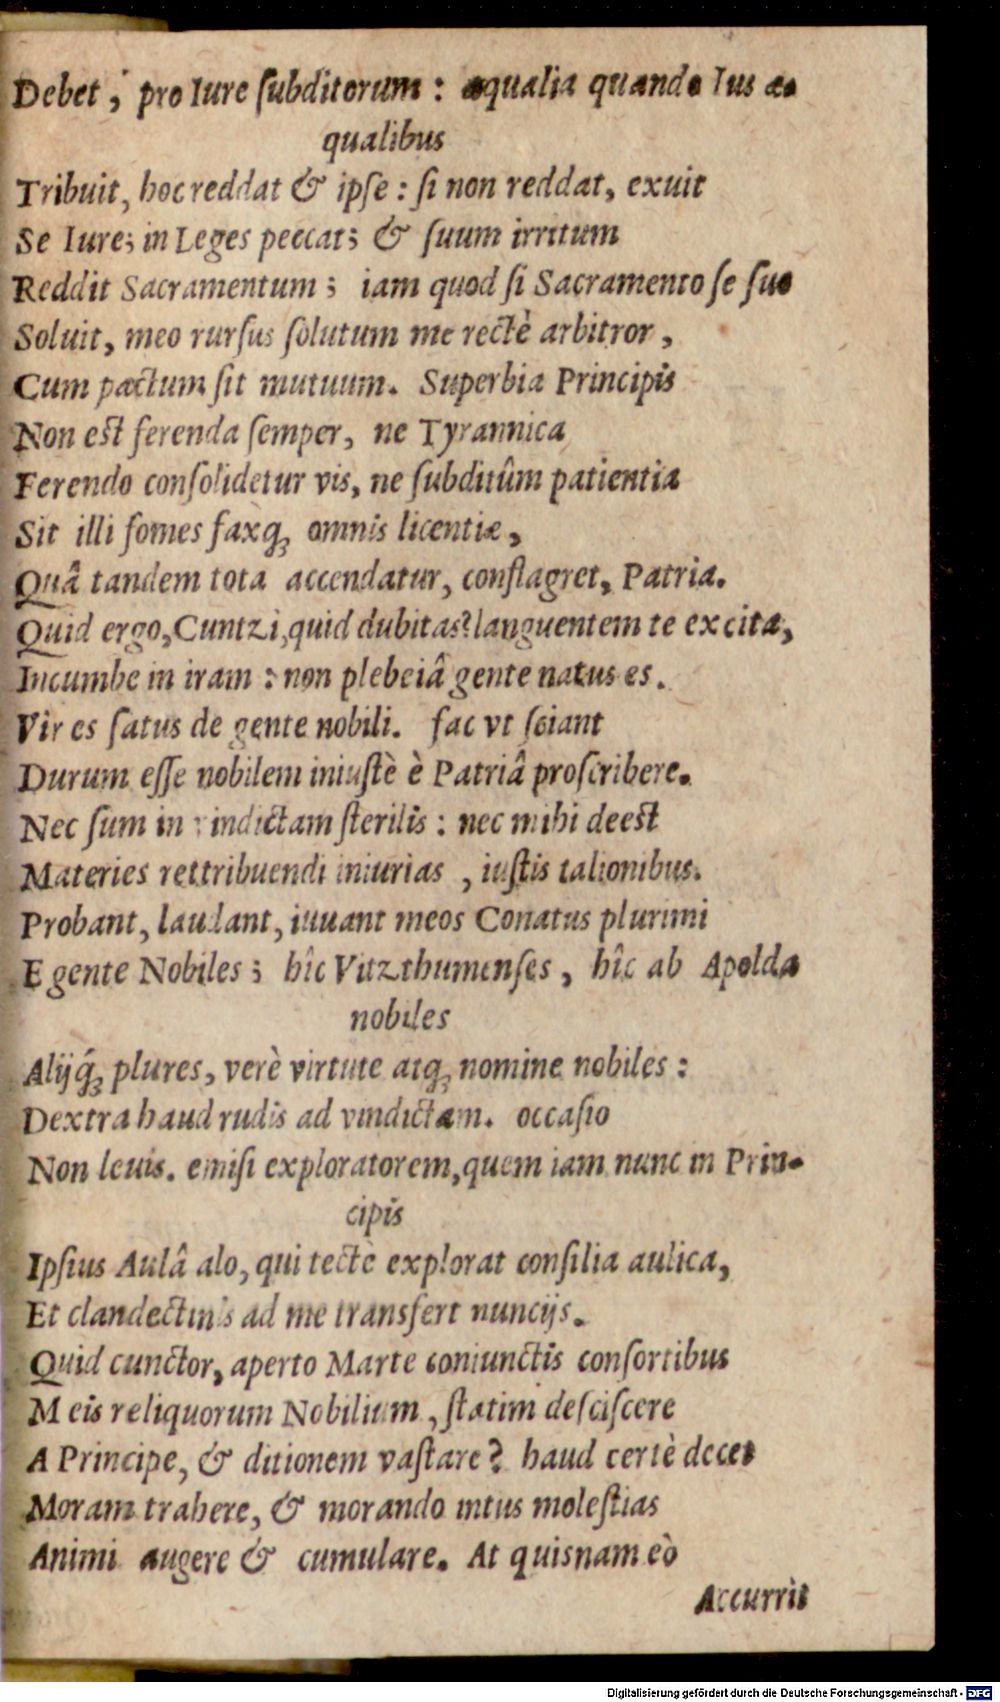 Debet, pro Iure ſubditorum: æqualia quando Ius æ-
qualibus
Tribuit, hoc reddat & ipſe: ſi non reddat, exuit
Se Iure; in Leges peccat; & ſuum irritum
Reddit Sacramentum; iam quod ſi Sacramento ſe ſuo
Soluit, meo rurſus ſolutum me rectè arbitror,
Cum pactum ſit mutuum. Superbia Principis
Non est ferenda ſemper, ne Tyrannica
Ferendo conſolidetur vis, ne ſubditûm patientia
Sit illi fomes faxq́; omnis licentiæ,
Quâ tandem tota accendatur, conflagret, Patria.
Quid ergo, Cuntzi, quid dubitas? languentem te excita,
Incumbe in iram: non plebeiâ gente natus es.
Vir es ſatus de gente nobili. fac vt ſciant
Durum eſſe nobilem iniuſtè è Patriâ proſcribere.
Nec ſum in vindictam ſterilis: nec mihi deest
Materies rettribuendi iniurias, iuſtis talionibus.
Probant, laudant, iuuant meos Conatus plurimi
E gente Nobiles; hîc Vitzthumenſes, hîc ab Apolda
nobiles
Alijq́; plures, verè virtute atq; nomine nobiles:
Dextra haud rudis ad vindictam. occaſio
Non leuis. emiſi exploratorem, quem iam nunc in Prin-
cipis
Ipſius Aulâ alo, qui tectè explorat conſilia aulica,
Et clandectinis ad me transfert nuncijs.
Quid cunctor, aperto Marte coniunctis conſortibus
Meis reliquorum Nobilium, ſtatim deſciſcere
A Principe, & ditionem vaſtare? haud certè decet
Moram trahere, & morando intus moleſtias
Animi augere & cumulare. At quisnam eò
Accurrit
Digitalisierung gefördert durch die Deutsche Forschungsgemeinschaft - DFG